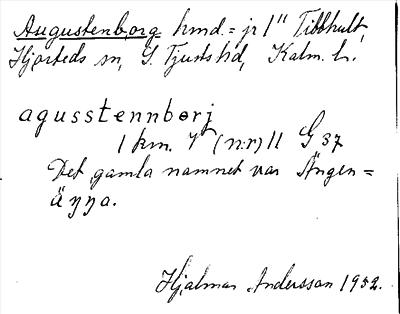 Augustenborg hmd. = jr 1" Tibbhult,
Hjorteds sn, S. Tjusts hd, Kalm. l.
agusstennbørj
1 km. V (n:r) 11 G 37
Det gamla namnet var Ängen=
äŋŋa.
Hjalmar Andersson 1932.